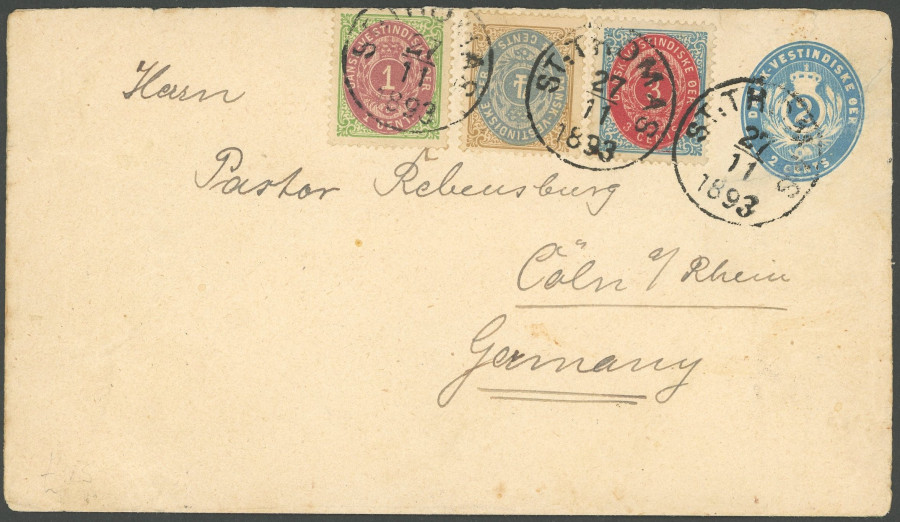 DANSK VESTINDISKE
1
CENTS
VESTINDISKE
3
3 CENTS
VESTINDISKE OER
2 CENTS
ST. THOMAS
11
1893
ST. THOMAS
27
11
1893
ST. THOMAS
27
11
1893
Herrn
Pastor Rebensburg
Cöln a/Rhein
Germany